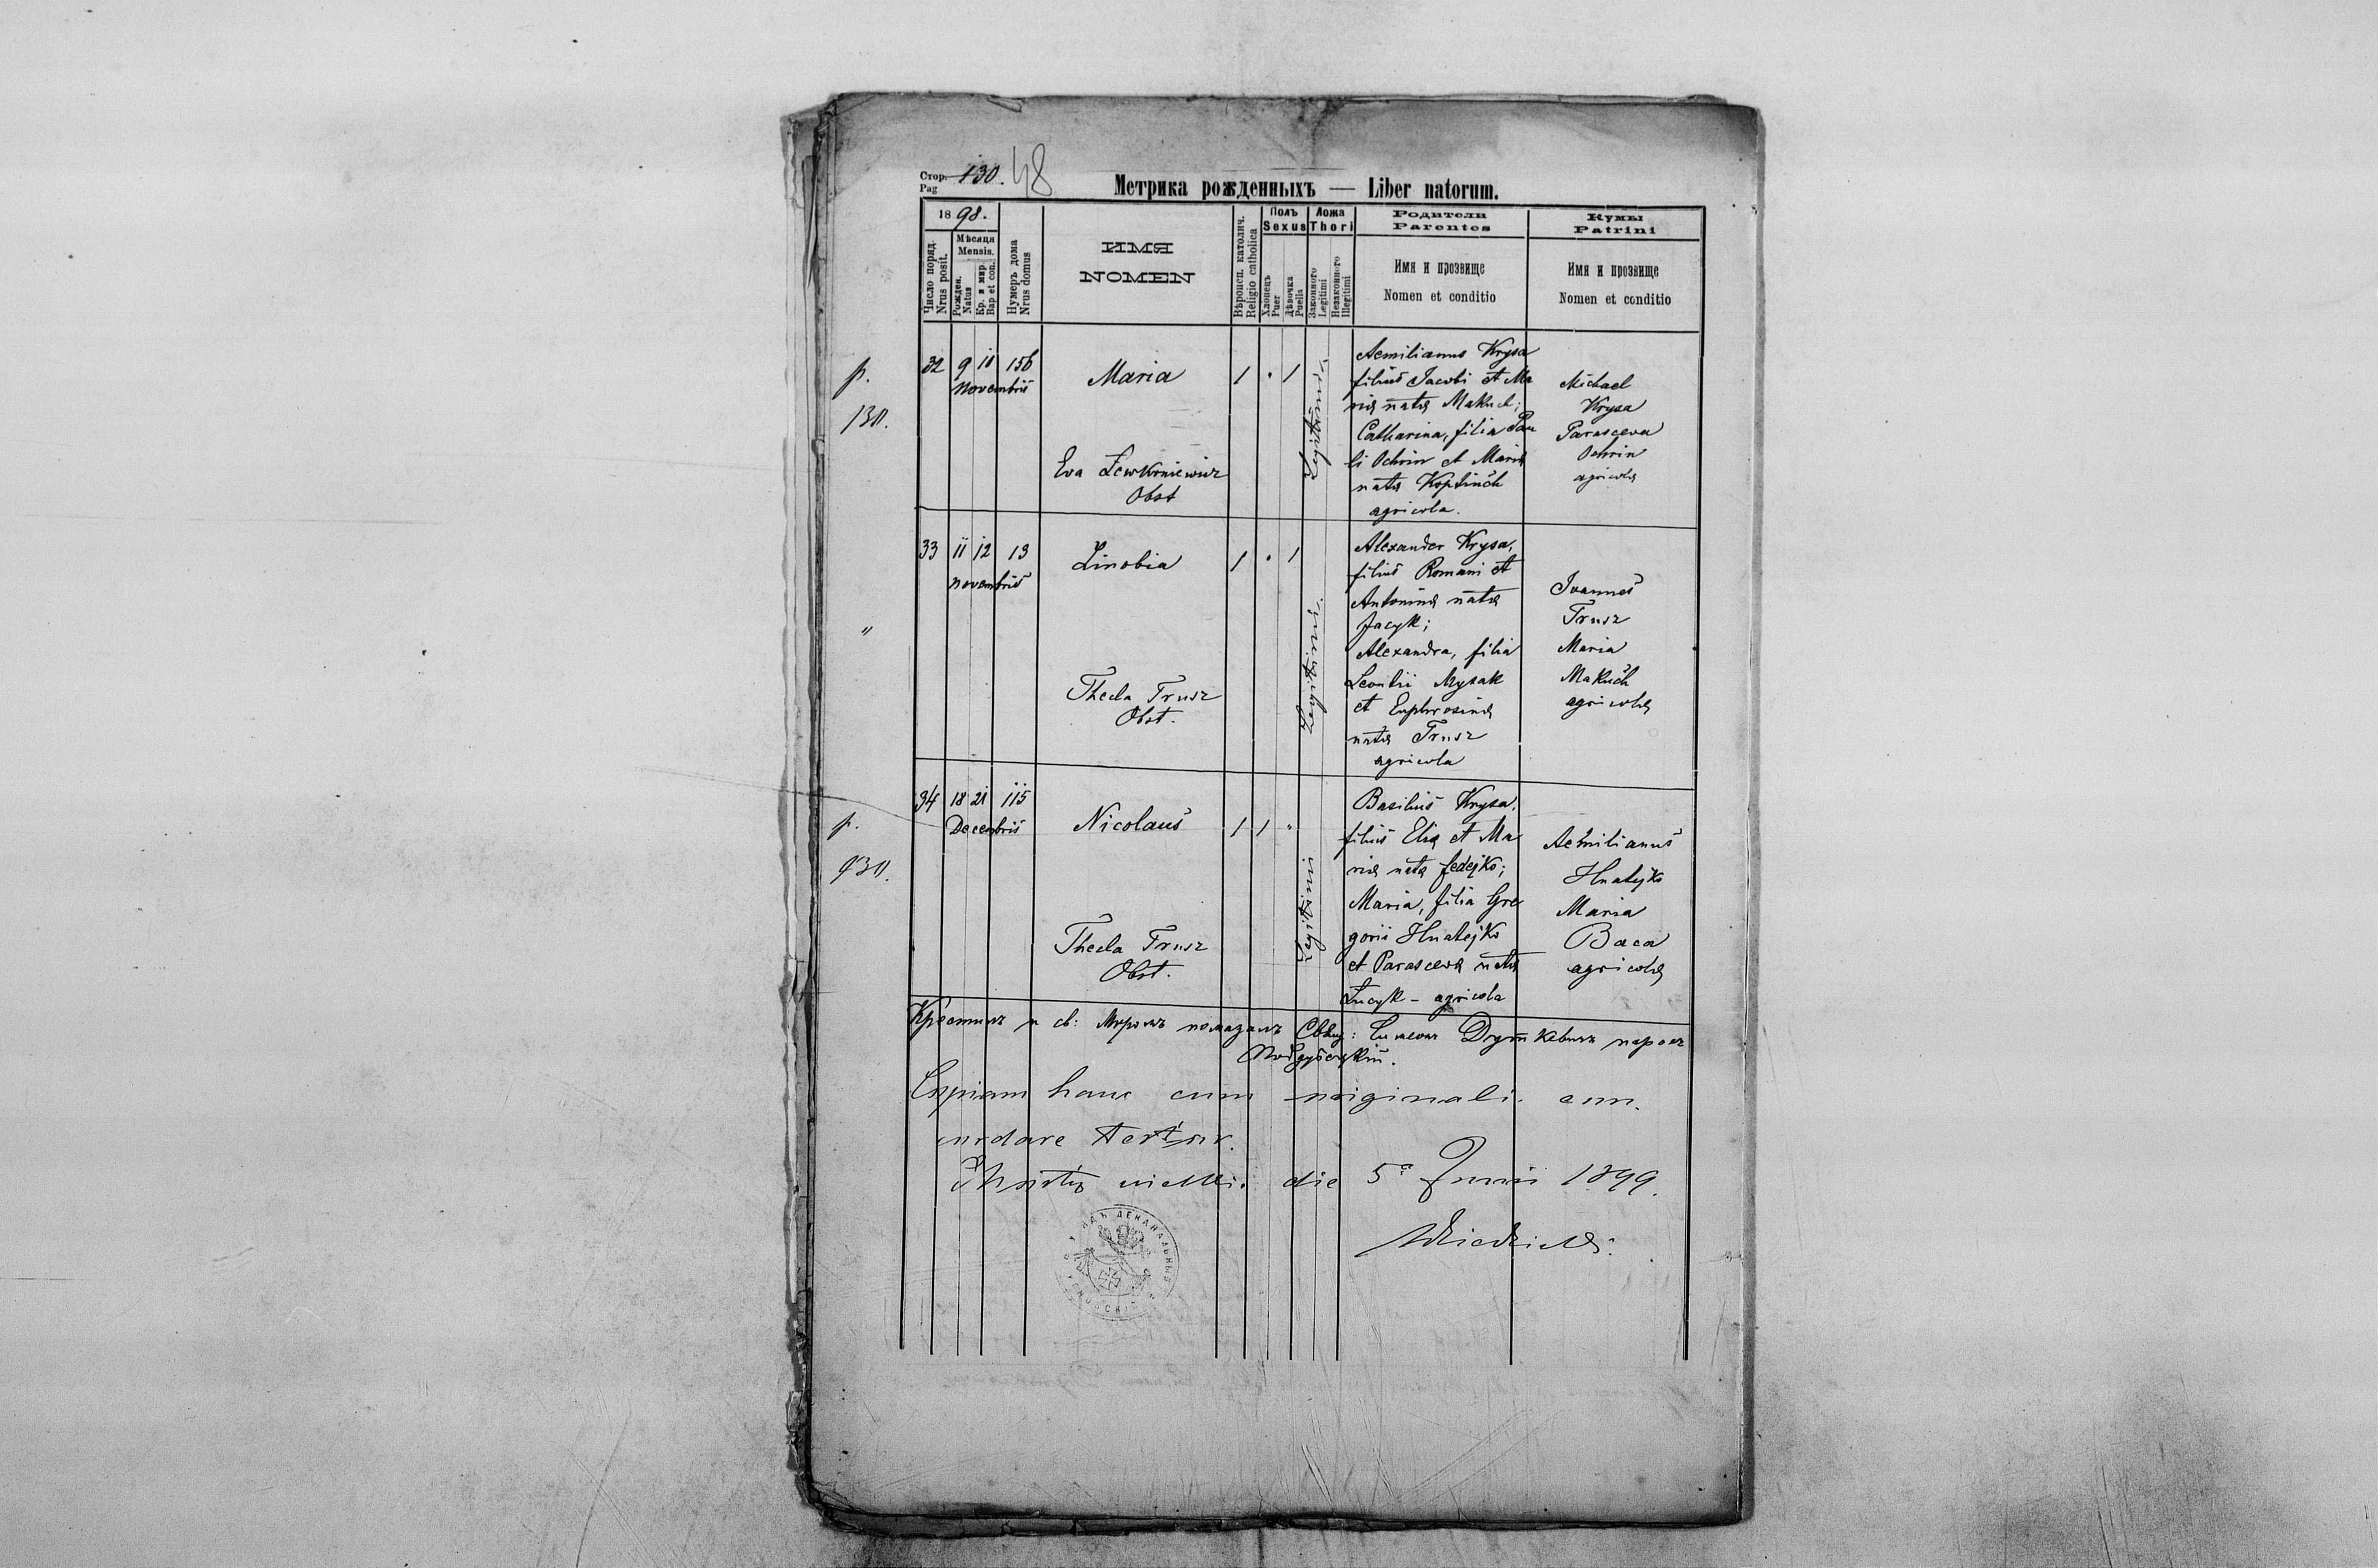 Стор. 130. 48
Pag
Метрика рожденныхъ — Liber natorum.
1898.
Число поряд.
Nrus posit.
Мѣсяця
Mensis.
Рожден.
Natus
Кр. и мир.
Bap et con.
Нумеръ дома
Nrus domus
ИМЯ
NOMEN
Вѣроисп. католич.
Religio catholica
Полъ
Sexus
Хлопецъ
Puer
Дѣвочка
Puella
Ложа
Thori
Законного
Legitimi
Незаконного
Illegitimi
Родители
Parentes
Имя и прозвище
Nomen et conditio
Кумы
Patrini
Имя и прозвище
Nomen et conditio
p.
130.
32 9 10 156
Novembris
Maria
1 . 1
Legitimi
Eva
Obst
Aemilianus Krysa
filius Jacobi et Ma
riæ natæ Makuch;
Catharina, filia Pau
li Ochrin et Mariæ
natæ
agricola.
Michael
Krysa
Parasceva
Ochrin
agricolæ
"
33 11 12 13
Novembris
Zinobia
1 . 1
Legitimi
Thecla Trusz
Obst.
Alexander Krysa,
filius Romani et
Antoninæ natæ
Jacyk;
Alexandra, filia
Leontii Mysak
et Euphrosinæ
natæ Trusz
agricola
Joannes
Trusz
Maria
Makuch
agricolæ
p.
130.
34 18 21 115
Decembris
Nicolaus
1 1 "
Legitimi
Thecla Trusz
Obst.
Basilius Krysa,
filius Eliæ et Ma
riæ natæ Fedejko;
Maria, filia Gre
gorii Hnatejko
et Parascevæ natæ
Łucyk - agricola
Aemilianus
Hnatejko
Maria
Baca
agricolæ
Крестилъ и св: Мѵромъ помазалъ Симеонъ парохъ
Copiam hanc cum originali con
cordare
die 5ª Junii 1899.